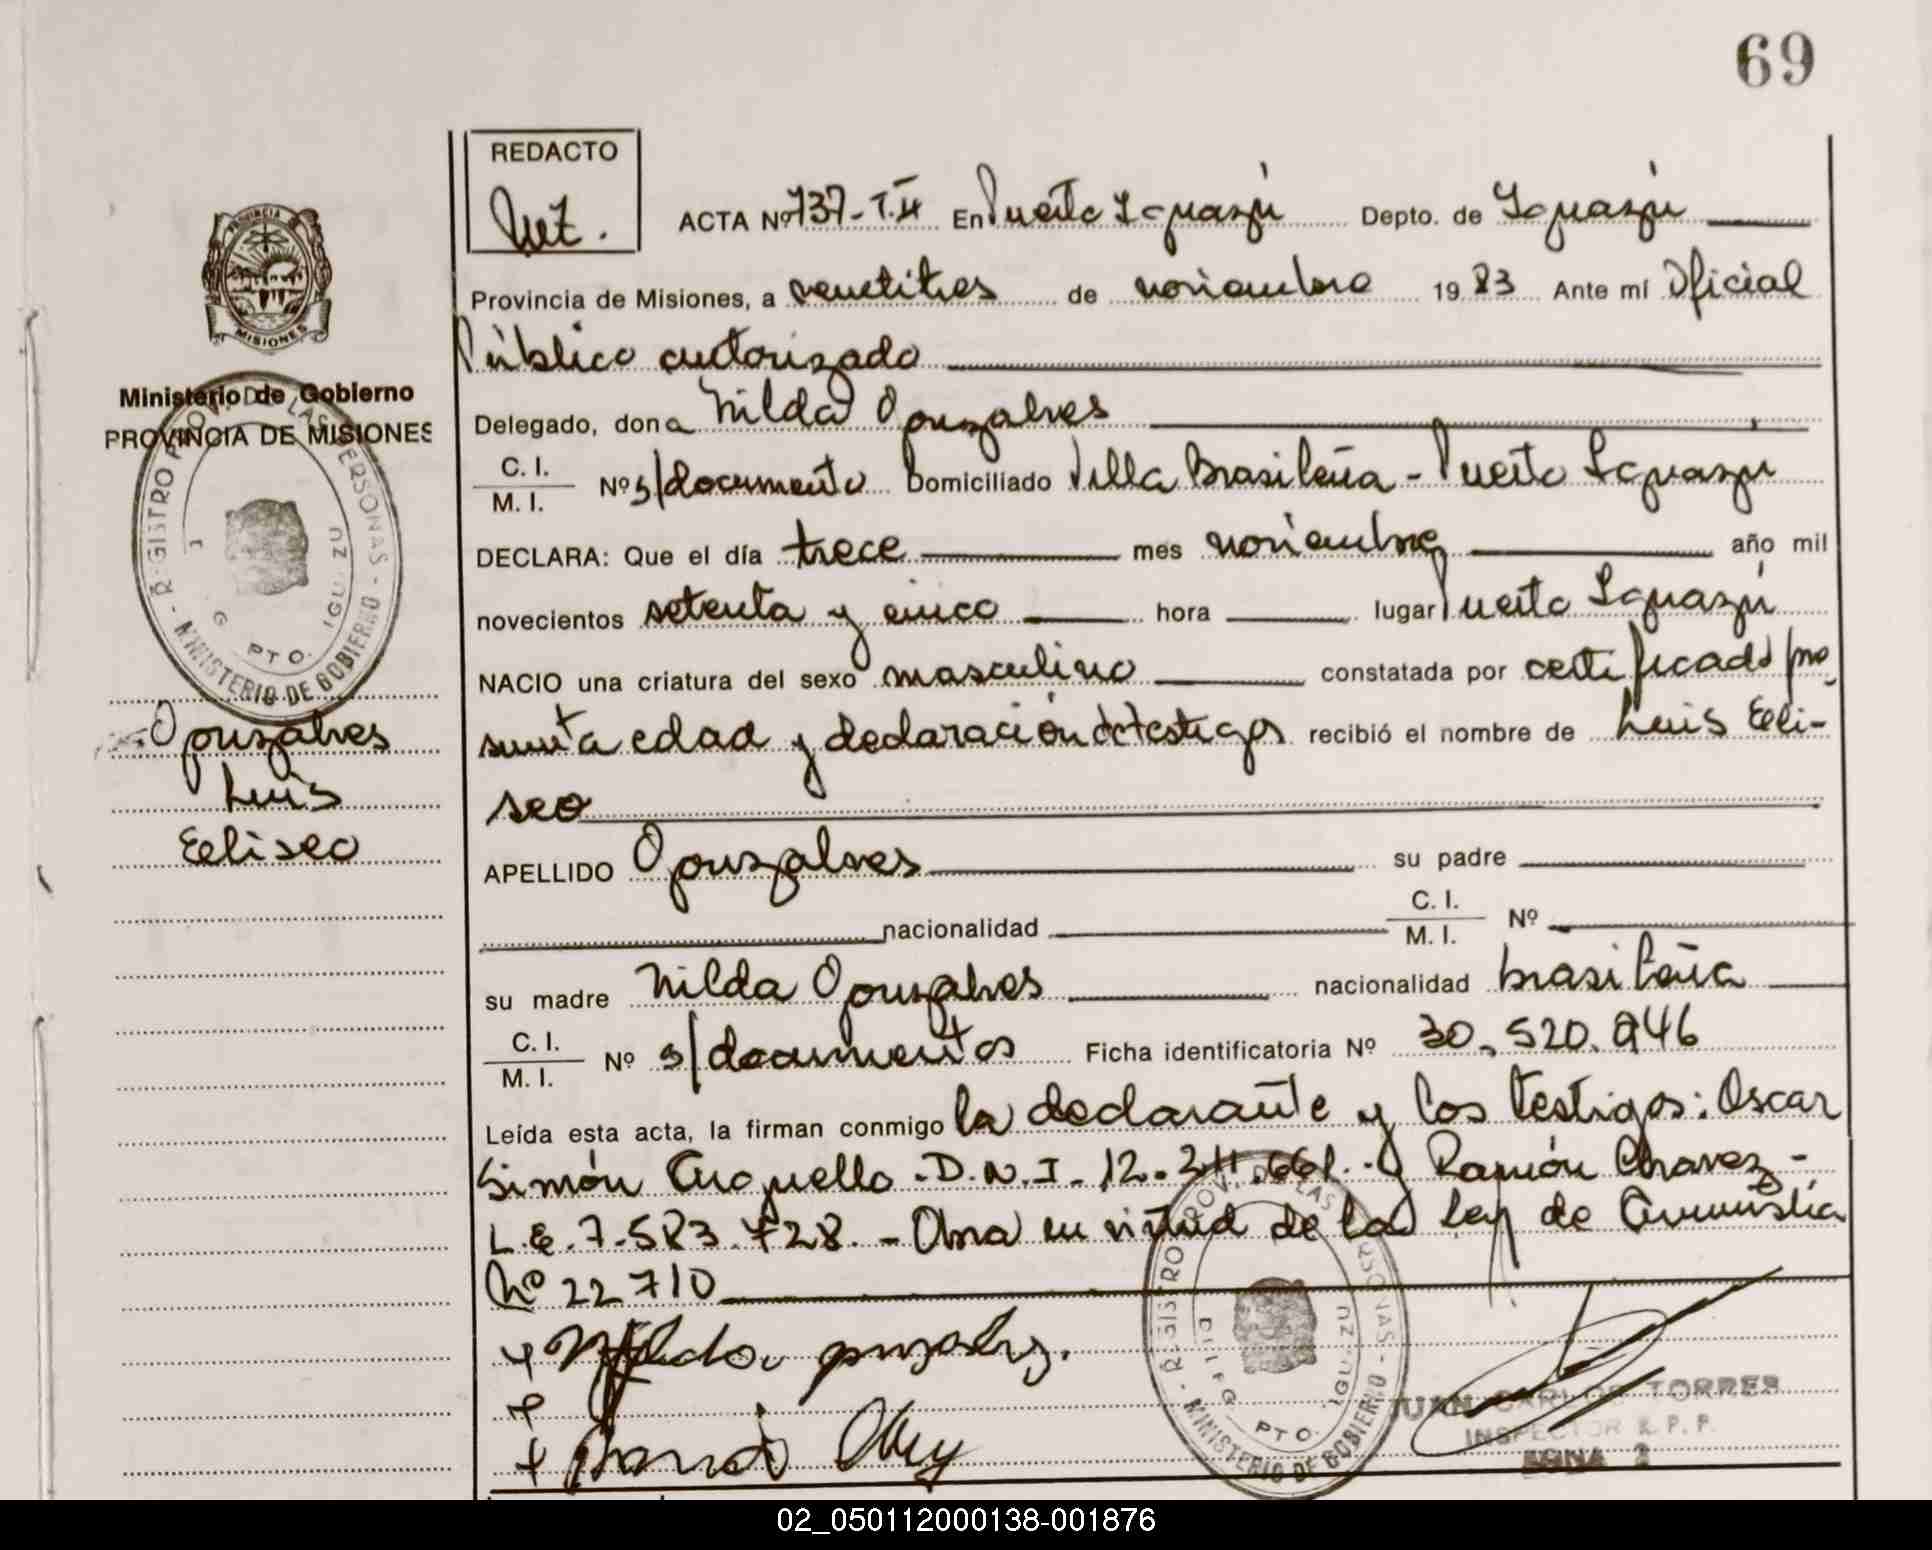 69
REDACTO
ACTA Nº 737-T.II En Puerto Iguazú Depto. de Iguazú
Provincia de Misiones, a veintitres de noviembre 1983 Ante mí Oficial
Público autorizado
Delegado, dona Nilda Gonzalves
C. I.
M. I.
Nº s/documento Domiciliado Villa Brasileña - Puerto Iguazú
DECLARA: Que el día trece mes noviembre año mil
novecientos setenta y cinco hora lugar Puerto Iguazú
NACIO una criatura del sexo masculino constatada por certificado pre
sunta edad y declaración de testigos recibió el nombre de Luis Eeli-
seo
APELLIDO Gonzalves su padre
nacionalidad C. I.
M. I. Nº
su madre Nilda Gonzalves nacionalidad brasileña
C. I.
M. I.
Nº s/documentos Ficha identificatoria Nº 30.520.946
Leída esta acta, la firman conmigo la declarante y los testigos: Oscar
Simón D.N.I. 12.311.661.- y Ramón Chavez -
L.E. 7.583.728. - Obra en virtud de la Ley de Amnistía
Nº 22710
PROVINCIA
MISIONES
Ministerio de Gobierno
PROVINCIA DE MISIONES
MINISTERIO DE GOBIERNO
PTO.
Gonzalves
Luis
Eeliseo
MINISTERIO DE GOBIERNO
PTO.
JUAN CARLOS TORRES
INSPECTOR R. P. P.
ZONA 2
02_050112000138-001876